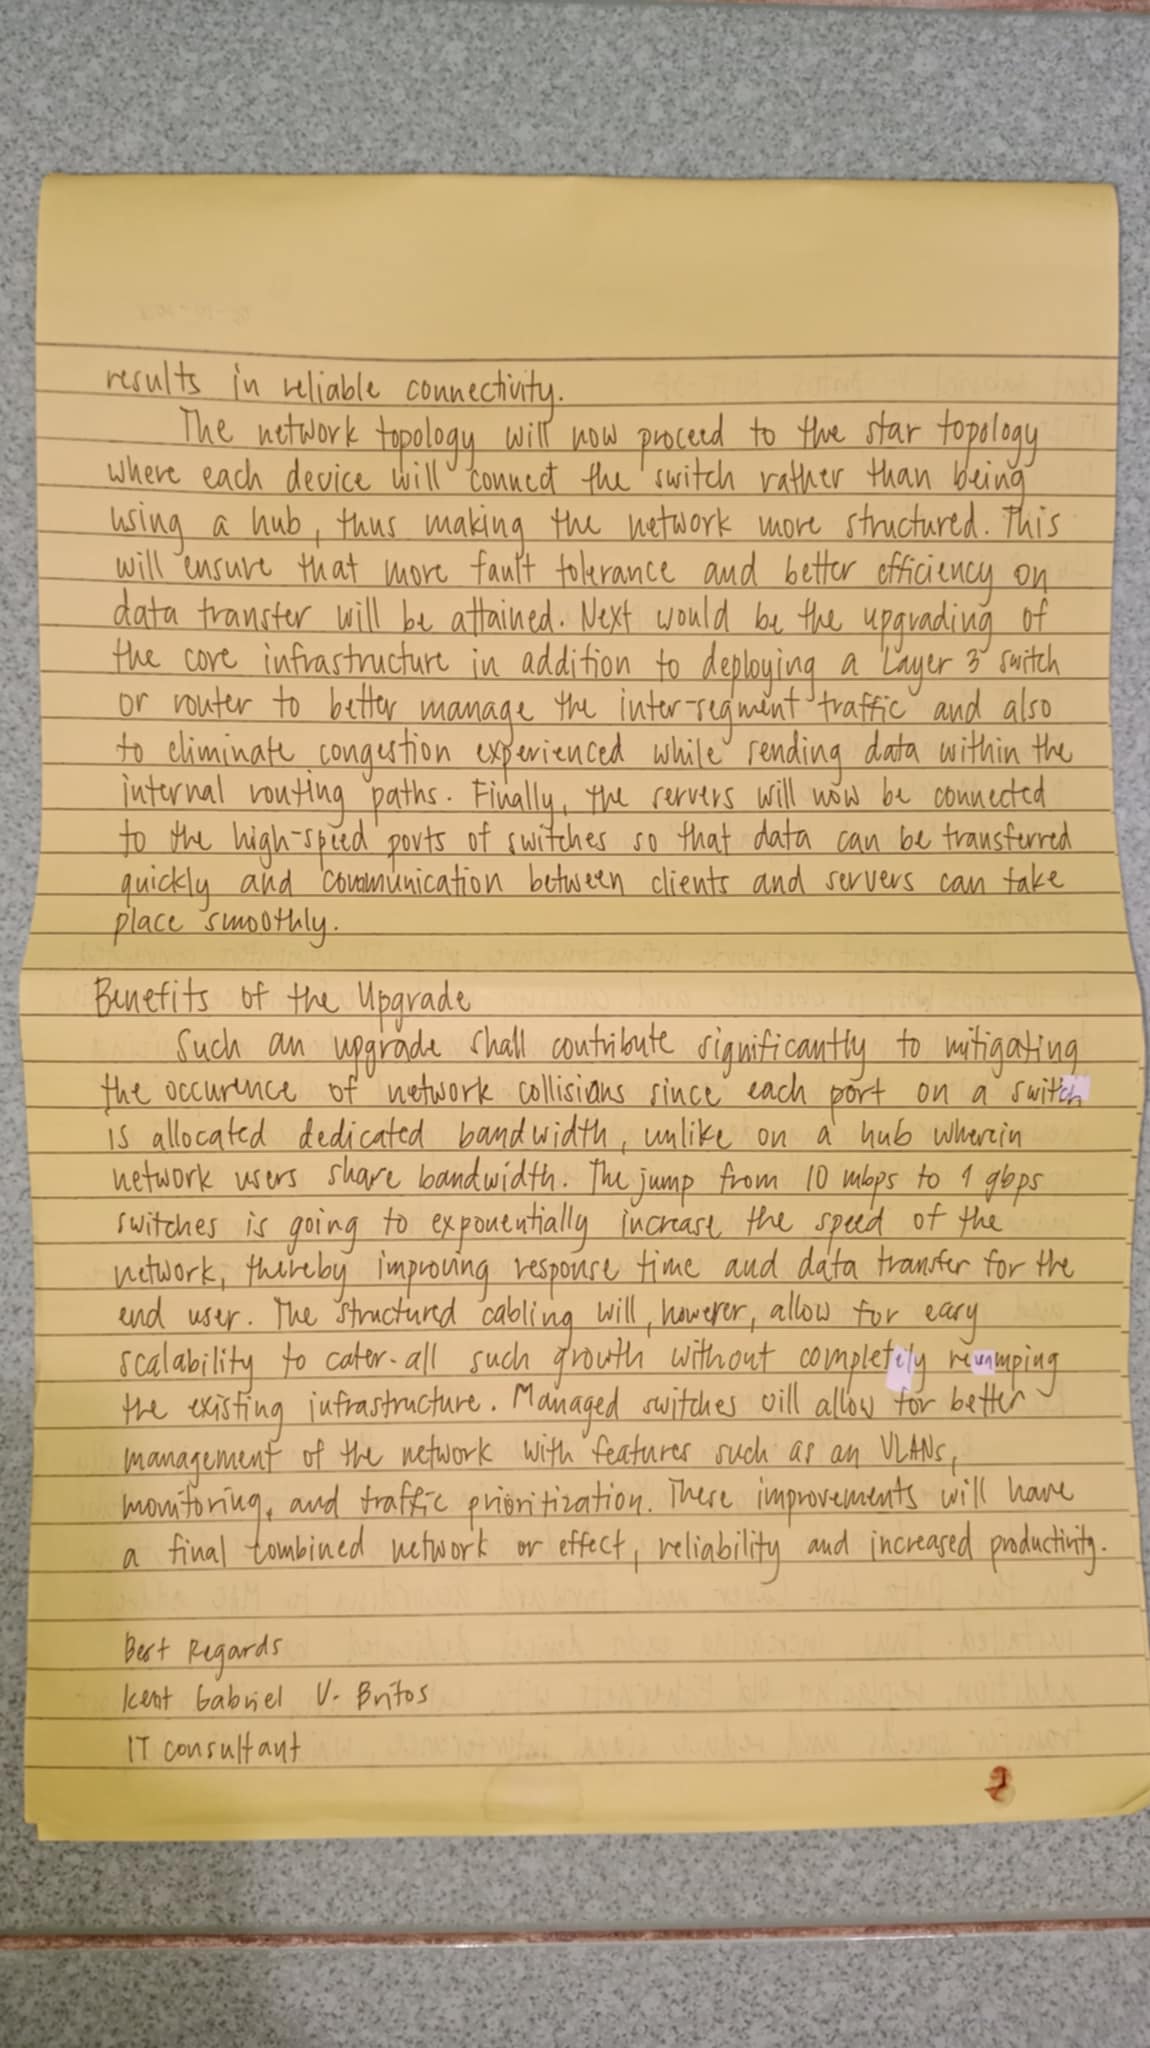 results in reliable connectivity.
The network topology will now proceed to the star topology
where each device will connect the switch rather than being
using a hub, thus making the network more structured. This
will ensure that more fault tolerance and better efficiency on
data transfer will be attained. Next would be the upgrading of
the core infrastructure in addition to deploying a Layer 3 switch
or router to better manage the inter-segment traffic and also
to eliminate congestion experienced while sending data within the
internal routing paths. Finally, the servers will now be connected
to the high-speed ports of switches so that data can be transferred
quickly and communication between clients and servers can take
place smoothly.
Benefits of the Upgrade
Such an upgrade shall contribute significantly to mitigating
the occurence of network collisions since each port on a switch
is allocated dedicated bandwidth, unlike on a hub wherein
network users share bandwidth. The jump from 10 mbps to 1 gbps
switches is going to exponentially increase the speed of the
network, thereby improving response time and data transfer for the
end user. The structured cabling will, however, allow for easy
scalability to cater all such growth without completely revamping
the existing infrastructure. Managed switches will allow for better
management of the network with features such as an VLANs,
monitoring, and traffic prioritization. These improvements will have
a final combined network or effect, reliability and increased productivity.
Best Regards
Kent Gabriel V. Britos
IT consultant